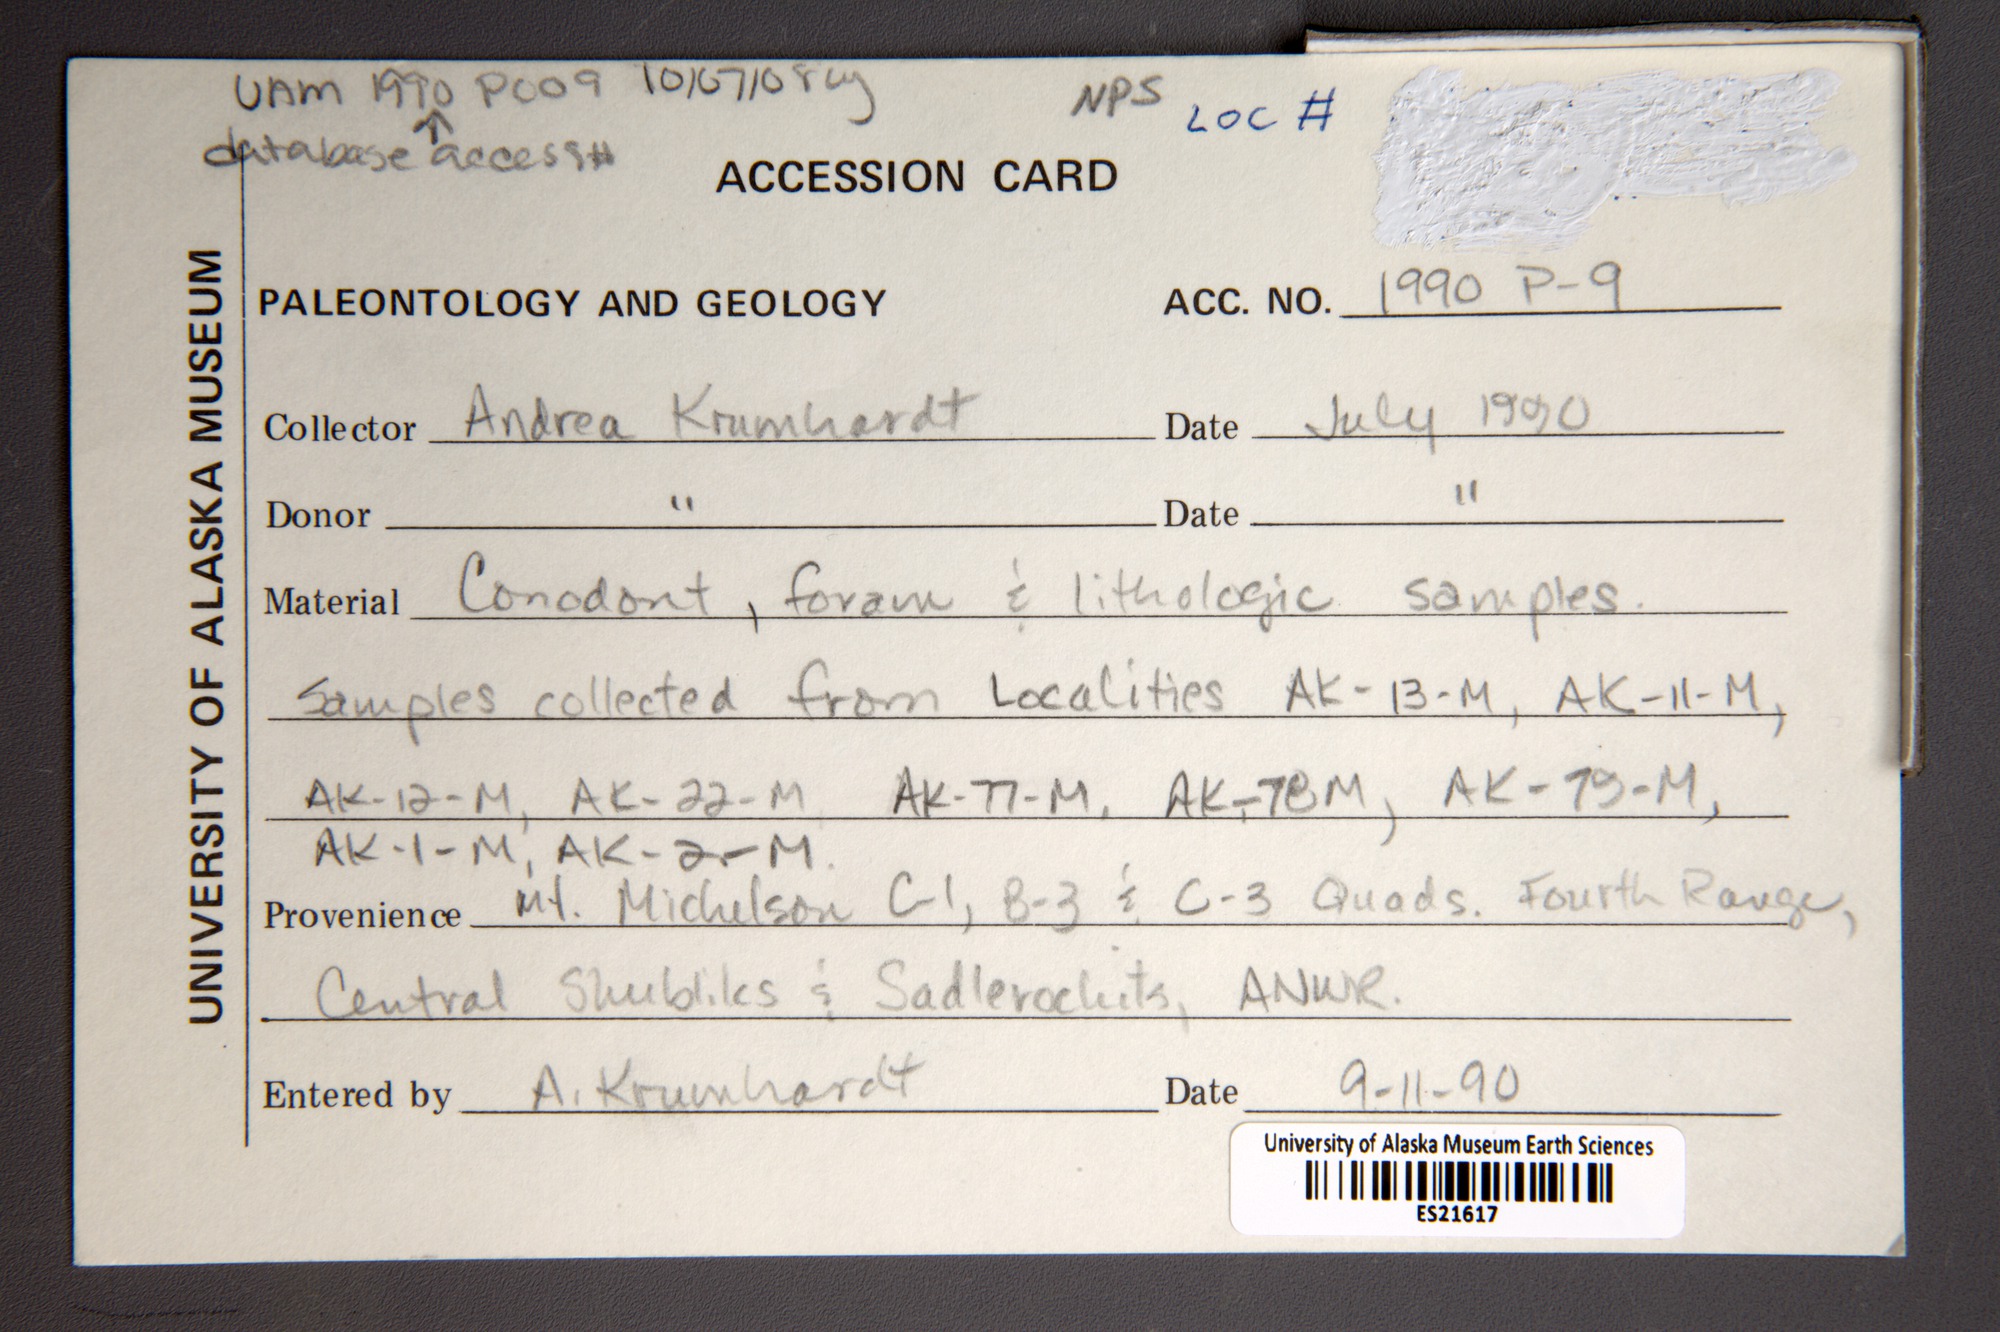 UAM 1990 P009 10/07/08
NPS LOC #
database access#
ACCESSION CARD
UNIVERSITY OF ALASKA MUSEUM
PALEONTOLOGY AND GEOLOGY ACC. NO. 1990 P-9
Collector Andrea Krumhardt Date July 1990
Donor " Date "
Material Conodont, foram & lithologic samples.
Samples collected from Localities AK-13-M, AK-11-M,
AK-12-M, AK-22-M AK-77-M, AK-78M, AK-79-M,
AK-1-M, AK-2-M.
Provenience Mt. Michelson C-1, B-3 & C-3 Quads. Fourth Range,
Central Shubliks & Sadlerochits, ANWR.
Entered by A. Krumhardt Date 9-11-90
University of Alaska Museum Earth Sciences
ES21617